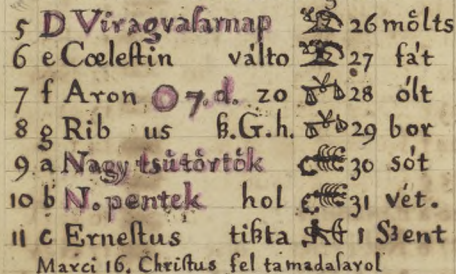 5 D Viragvasarnap 26 mőlts
6 e Cœlestin válto 27 fa't
7 f Aron 7. d. 20 28 ólt
8 g Rib us ß.G.h. 29 bor
9 a Nagy tsűtőrtők 30 sót
10 b N. pentek hol 31 vét.
11 c Ernestus tißta 1 Szent
Marci 16. Christus fel tamadasarol